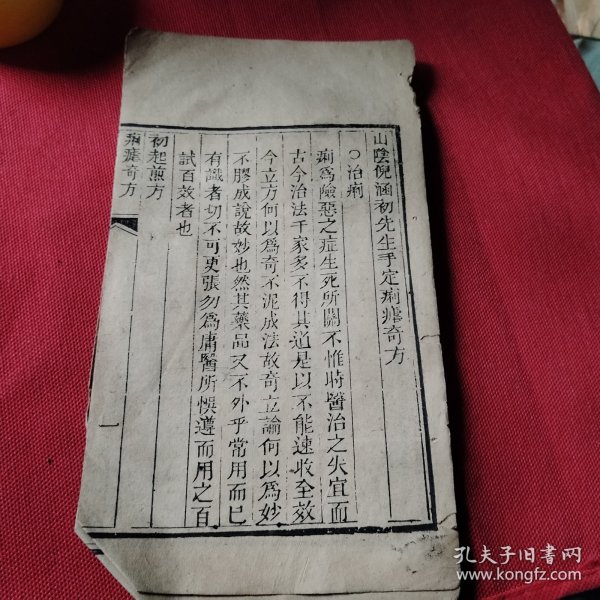 山陰倪涵初先生手定痢瘧奇方
○治痢
痢爲險惡之症生死所關不惟時醫治之失宜而
古今治法千家多不得其道是以不能速收全效
今立方何以爲奇不泥成法故奇立論何以爲妙
不膠成說故妙也然其藥品又不外乎常用而已
有識者切不可更張勿爲庸醫所悞遵而用之百
試百效者也
初起煎方
痢瘧奇方
一
孔夫子旧书网
www.kongfz.com